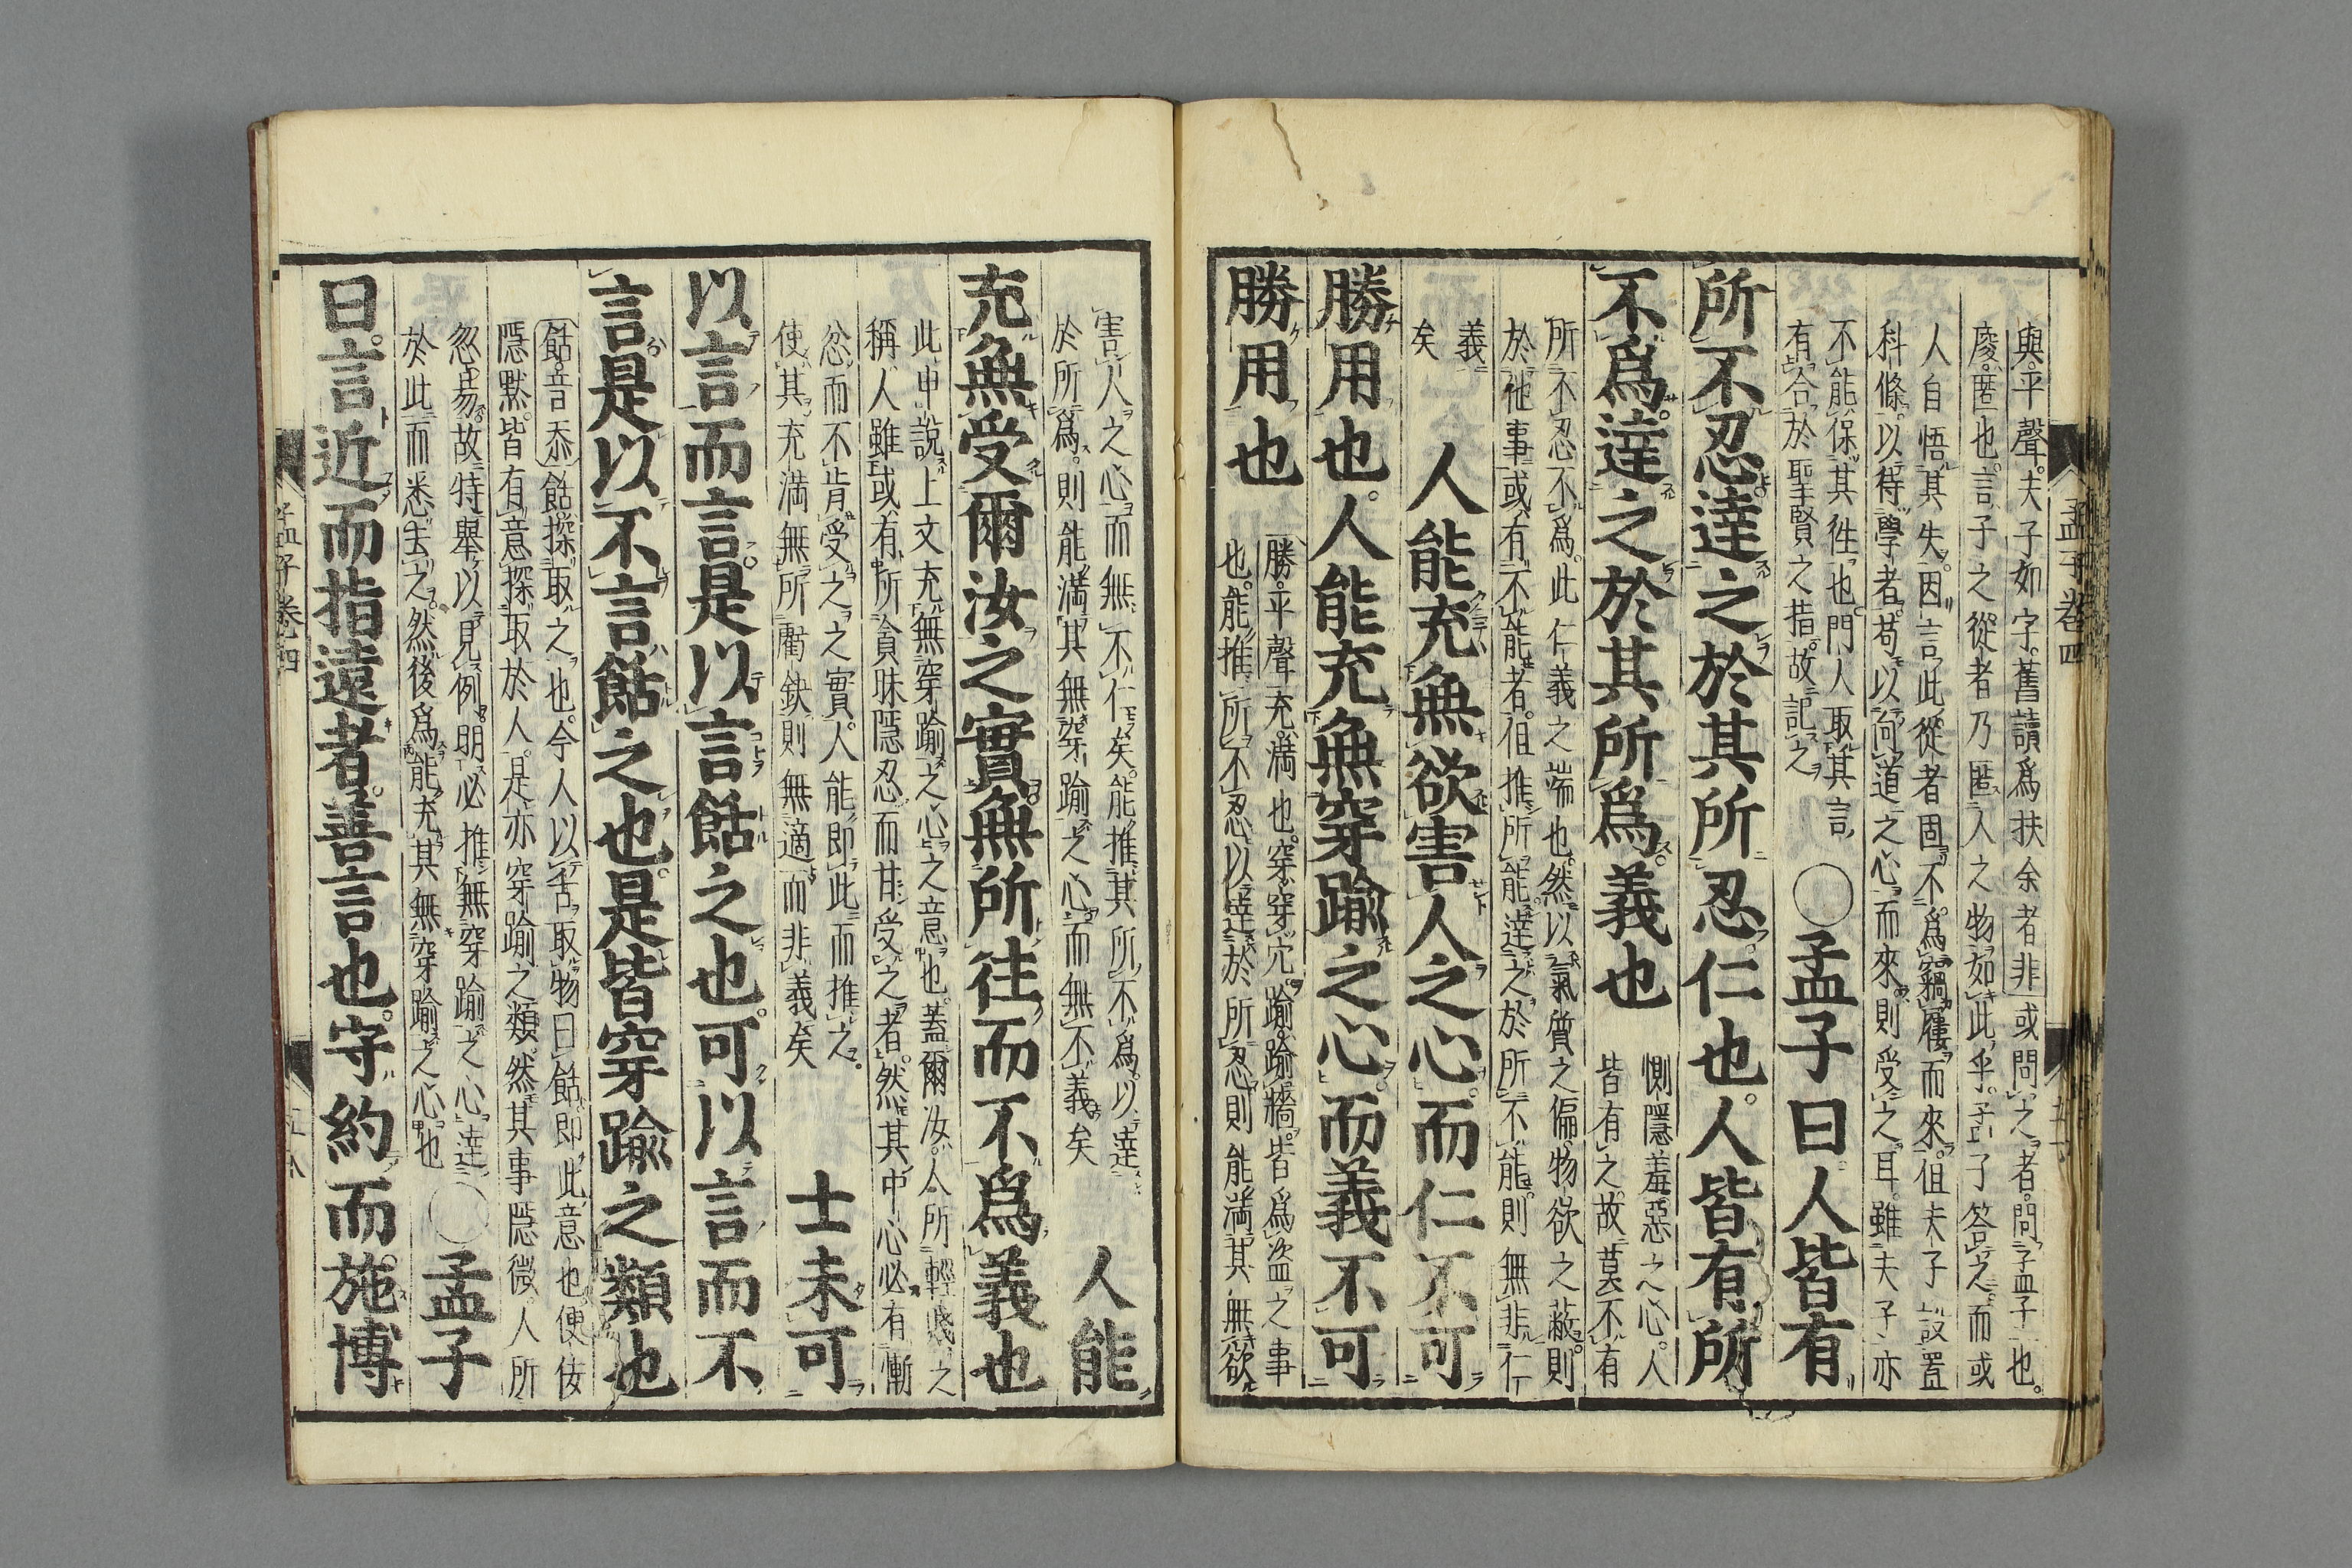 孟子卷四
與平聲夫子如字舊讀爲扶余者非或問之者問孟子也
廋匿也言子之從者乃匿人之物如此乎孟子答之而或
人自悟其失因言此從者固不爲竊屨而來但夫子設置
科條以待學者苟以向道之心而來則受之耳雖夫子亦
不能保其往也門人取其言
有合於聖賢之指故記之
○孟子曰人皆有
所不忍達之於其所忍仁也人皆有所
不爲達之於其所爲義也
惻隱羞惡之心人
皆有之故莫不有
所不忍不爲此仁義之端也然以氣質之偏物欲之蔽則
於他事或有不能者但推所能達之於所不能則無非仁
義
矣
人能充無欲害人之心而仁不可
勝用也人能充無穿踰之心而義不可
勝用也
勝平聲充滿也穿穿穴踰踰牆皆爲盜之事
也能推所不忍以達於所忍則能滿其無欲
害人之心而無不仁矣能推其所不爲以達
於所爲則能滿其無穿踰之心而無不義矣
人能
充無受爾汝之實無所往而不爲義也
此申說上文充無穿踰之心之意也蓋爾汝人所輕賤之
稱人雖或有所貪昧隱忍而甘受之者然其中心必有慚
忿而不肯受之之實人能即此而推之
使其充滿無所虧缺則無適而非義矣
士未可
以言而言是以言餂之也可以言而不
言是以不言餂之也是皆穿踰之類也
餂音忝餂探取之也今人以舌取物曰餂即此意也便佞
隱默皆有意探取於人是亦穿踰之類然其事隱微人所
忽易故特舉以見例明必推無穿踰之心達
於此而悉去之然後爲能充其無穿踰之心也
○孟子
曰言近而指遠者善言也守約而施博
孟子卷四